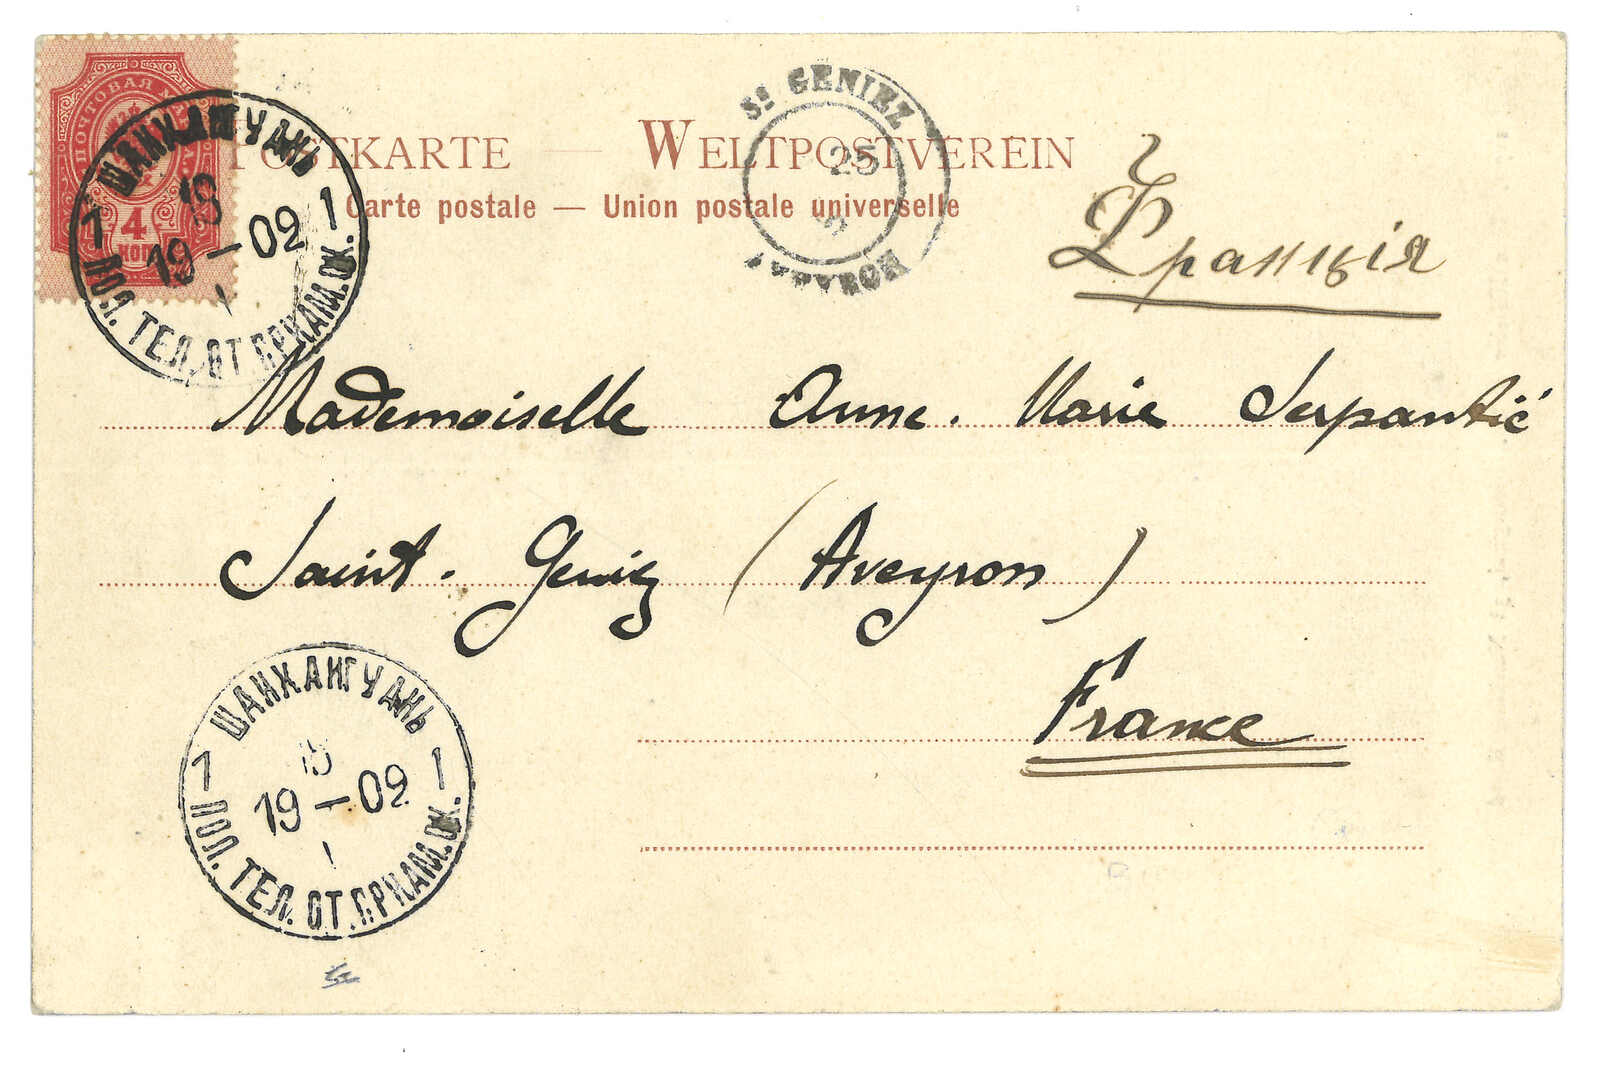 ПОЧТОВАЯ МАРКА
4
КОП
ШАНХАЙГУАНЬ
1 19 1
19 – 02
1
ПОЛ. ТЕЛ. ОТ. ПРИАМ. ОК.
POSTKARTE — WELTPOSTVEREIN
Carte postale — Union postale universelle
St GENIEZ
25
AVEYRON
Франція
Mademoiselle Anne-Marie Serpantié
Saint-Geniez (Aveyron)
France
ШАНХАЙГУАНЬ
1 19 – 02 1
1
ПОЛ. ТЕЛ. ОТ. ПРИАМ. ОК.